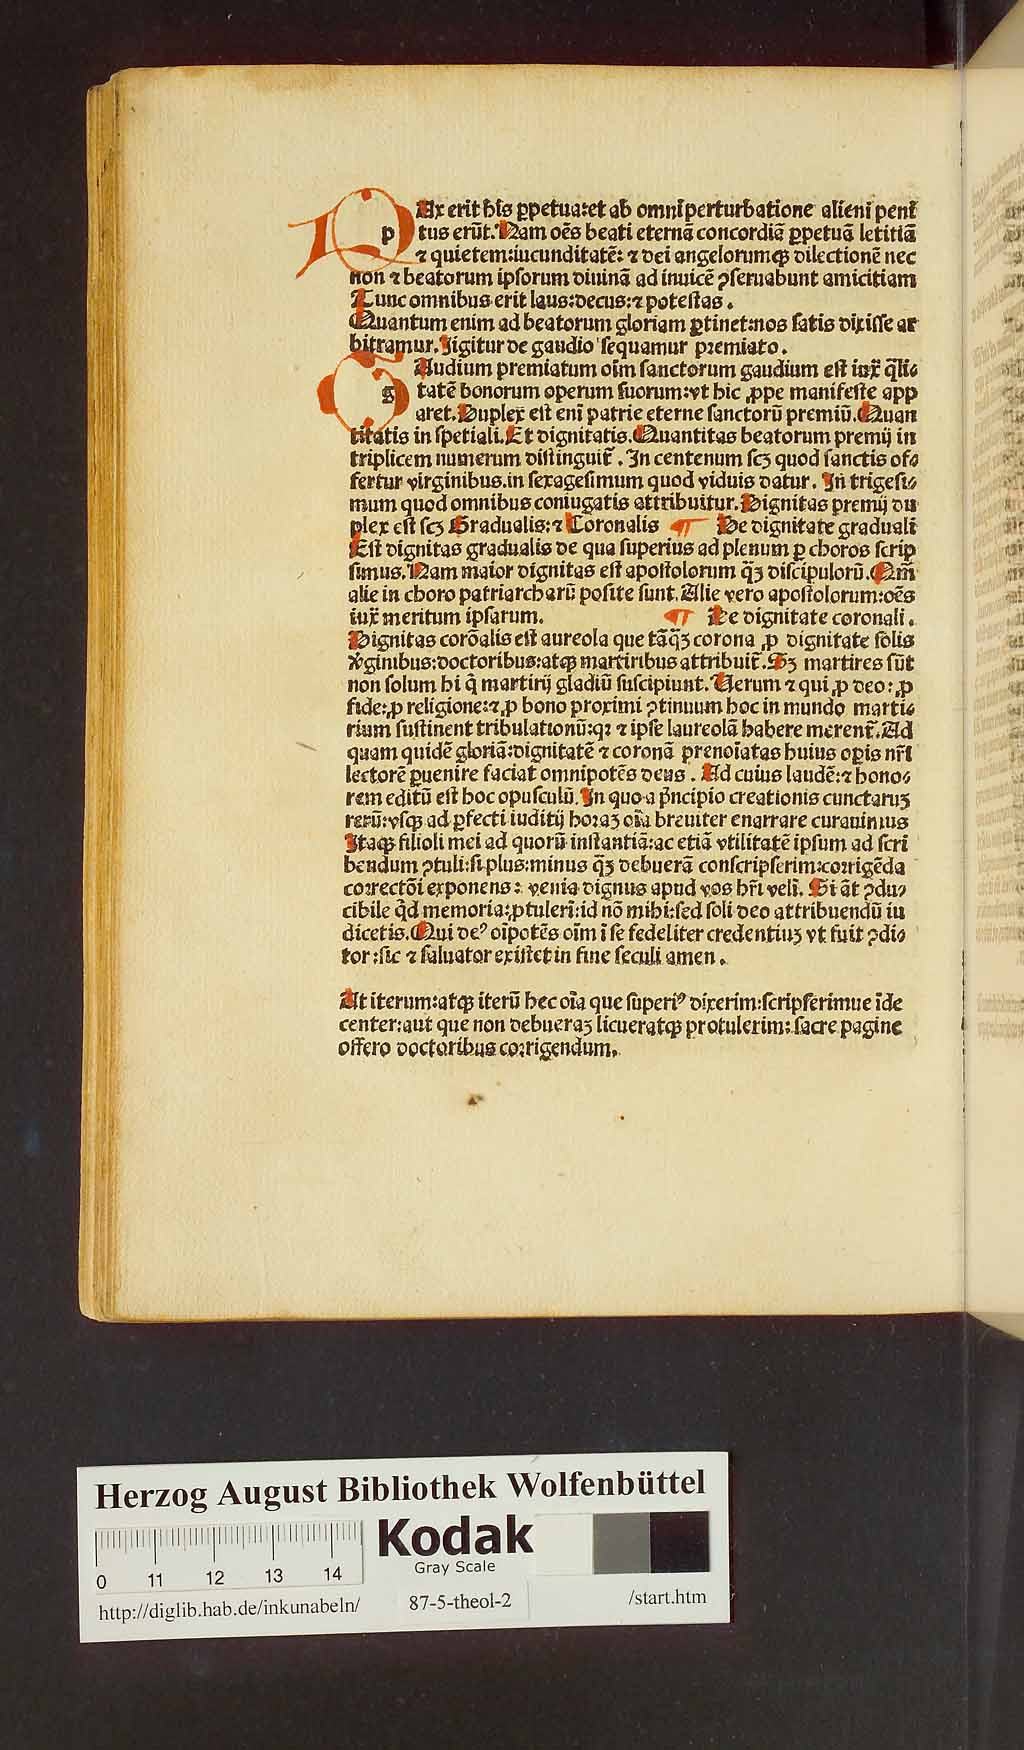 pAx erit his ꝑpetua:et ab omni perturbatione alieni peni
tus erūt. Nam oēs beati eternā concordiā ꝑpetuā letitiā
⁊ quietem:iucunditatē: ⁊ dei angelorumqꝫ dilectionē nec
non ⁊ beatorum ipsorum diuinā ad inuicē ꝯseruabunt amicitiam
Tunc omnibus erit laus:decus:⁊ potestas.
Quantum enim ad beatorum gloriam ꝑtinet:nos satis dixisse ar
bitramur. Jigitur de gaudio sequamur premiato.
gAudium premiatum oīm sanctorum gaudium est iux̄ q̄li⸗
tatē bonorum operum suorum:vt hic ꝓpe manifeste app
aret. Duplex est eni patrie eterne sanctorū premiū. Quan
titatis in spetiali. Et dignitatis. Quantitas beatorum premij in
triplicem numerum distinguit̄. In centenum scꝫ quod sanctis of⸗
fertur virginibus. in sexagesimum quod viduis datur. In trigesi⸗
mum quod omnibus coniugatis attribuitur. Dignitas premij du
plex est scꝫ Gradualis:⁊ Coronalis ¶ De dignitate graduali
Est dignitas gradualis de qua superius ad plenum ꝑ choros scrip
simus. Nam maior dignitas est apostolorum q̄ꝫ discipulorū. Qm̄
alie in choro patriarcharū posite sunt. Alie vero apostolorum:oēs
iux̄ meritum ipsarum. ¶ De dignitate coronali.
Dignitas corōalis est aureola que tāq̄ꝫ corona ꝓ dignitate solis
v̓ginibus:doctoribus:atqꝫ martiribus attribuit̄. Sꝫ martires sūt
non solum hi q̄ martirij gladiū suscipiunt. Uerum ⁊ qui ꝓ deo: ꝓ
fide:ꝓ religione:⁊ ꝓ bono proximi ꝯtinuum hoc in mundo marti⸗
rium sustinent tribulationū:qꝛ ⁊ ipse laureolā habere merent̄. Ad
quam quidē gloriā:dignitatē ⁊ coronā prenoīatas huius oꝑis nr̄i
lectorē ꝑuenire faciat omnipotēs deus. Ad cuius laudē:⁊ hono⸗
rem editū est hoc opusculū. In quo a p̄ncipio creationis cunctaruꝫ
rerū:vsqꝫ ad ꝑfecti iuditij horaꝫ oīa breuiter enarrare curauimus
Itaqꝫ filioli mei ad quorū instantiā:ac etiā vtilitatē ipsum ad scri
bendum ꝯtuli:si plus:minus q̄ꝫ debuerā conscripserim:corrigēda
correctōi exponens: venia dignus apud vos hr̄i veli. Si āt ꝯdu⸗
cibile q̄d memoria:ꝓtuleri:id nō mihi:sed soli deo attribuendū iu
dicetis. Qui deꝰ oīpotēs oīm ī se fedeliter credentiuꝫ vt fuit ꝯdi⸗
tor:sic ⁊ saluator existet in fine seculi amen.
At iterum:atqꝫ iterū hec oīa que superiꝰ dixerim:scripserimue īde
center:aut que non debueraꝫ licueratqꝫ protulerim: sacre pagine
offero doctoribus corrigendum.
Herzog August Bibliothek Wolfenbüttel
0 11 12 13 14
Kodak
Gray Scale
http://diglib.hab.de/inkunabeln/ 87-5-theol-2 /start.htm